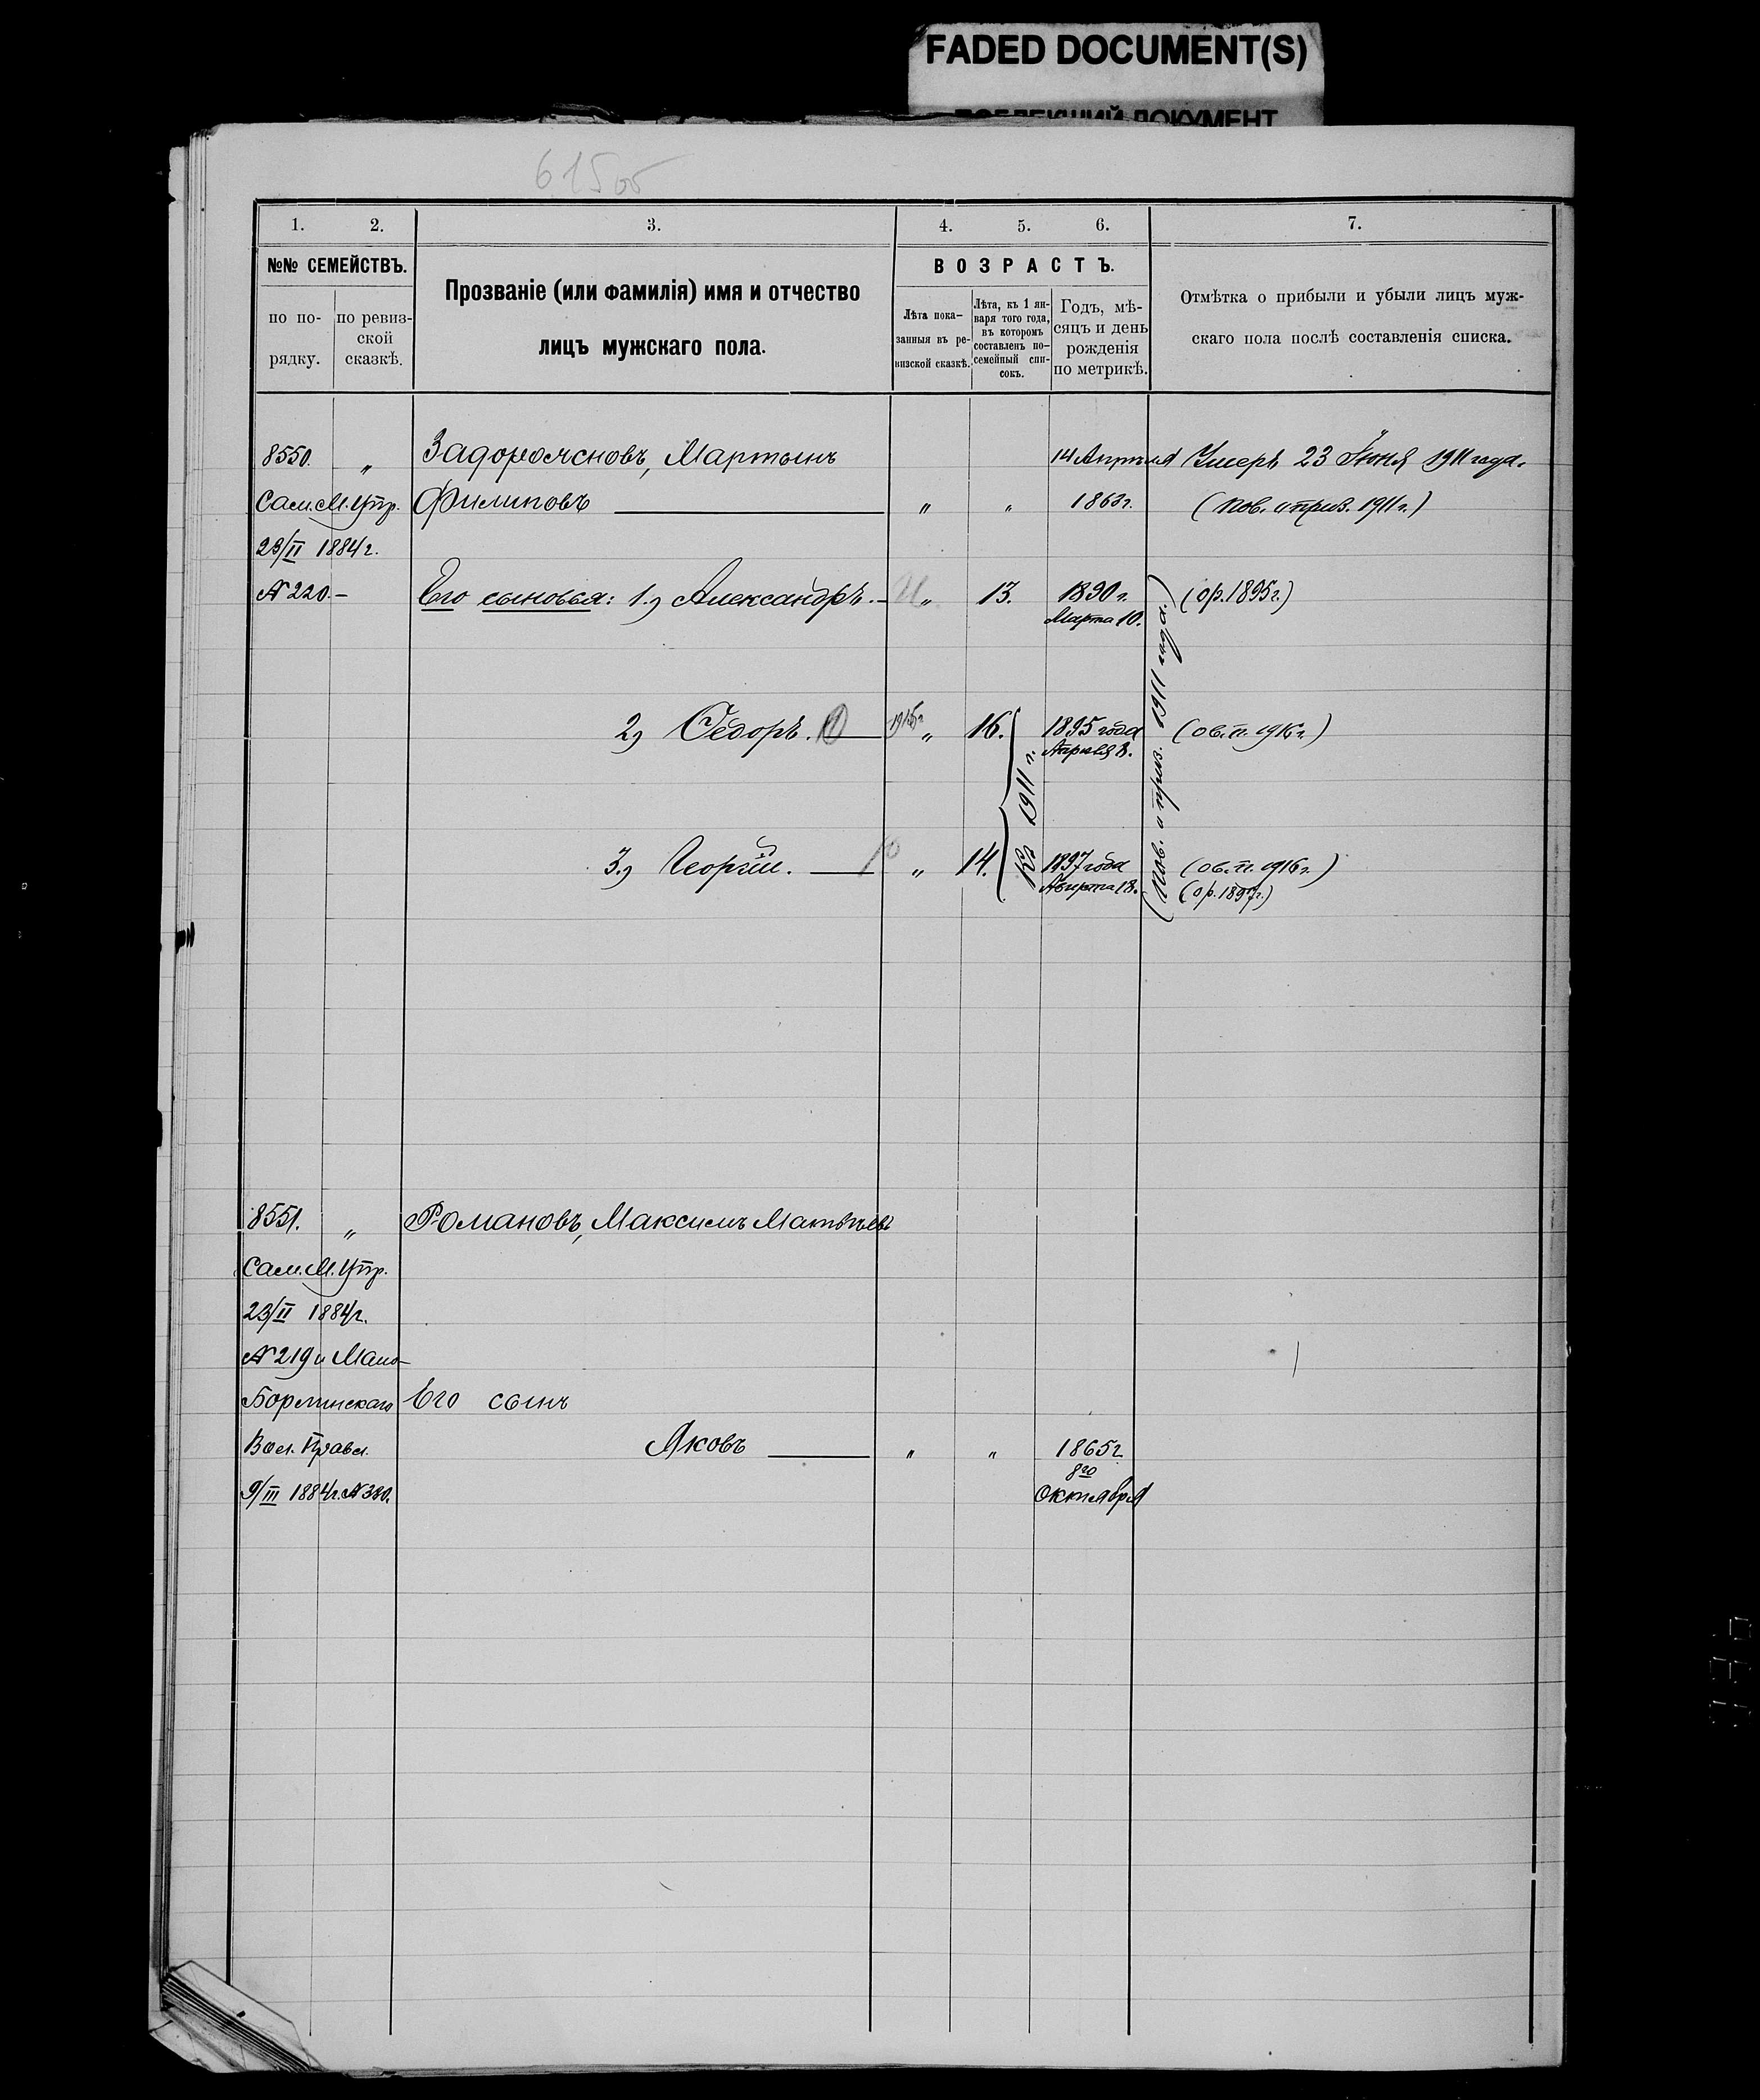 FADED DOCUMENT(S)
ПОБЛЕКШИЙ ДОКУМЕНТ
615об
1. 2. 3. 4. 5. 6. 7.
№№ СЕМЕЙСТВЪ.
по по-
рядку.
по ревиз-
ской
сказкѣ.
Прозваніе (или фамилія) имя и отчество
лицъ мужскаго пола.
ВОЗРАСТЪ.
Лѣта пока-
занныя въ ре-
визской сказкѣ.
Лѣта, къ 1 ян-
варя того года,
въ которомъ
составленъ по-
семейный спи-
сокъ.
Годъ, мѣ-
сяцъ и день
рожденія
по метрикѣ.
Отмѣтка о прибыли и убыли лицъ муж-
скаго пола послѣ составленія списка.
8550. „ Задорожновъ, Мартынъ 14 Апрѣля Умеръ 23 Іюня 1911 года.
Сам. М. Упр. Филиповъ „ „ 1863г. (пов. и приз. 1911 г.)
23/II 1884 г.
№ 220.– Его сыновья: 1.) Александръ. – „ 13. 1890 г. (ор. 1895 г.)
Марта 10.
2) Ѳедоръ. 1915г „ 16. 1895 года (ов. п. 1916 г.)
Апрѣля 8.
3.) Георгій. „ 14. 1897 года (ов. п. 1916 г.)
Августа 18. (ор. 1897 г.)
Къ 1911 г.
(Пов. и приз. 1911 года.)
8551. „ Романовъ, Максимъ Матвѣевъ
Сам. М. Упр.
23/II 1884 г.
№ 219 и Мало-
Борлинскаго Его сынъ
Вол. Правл. Яковъ „ „ 1865г
8го
9/III 1884 г. № 380. Октября